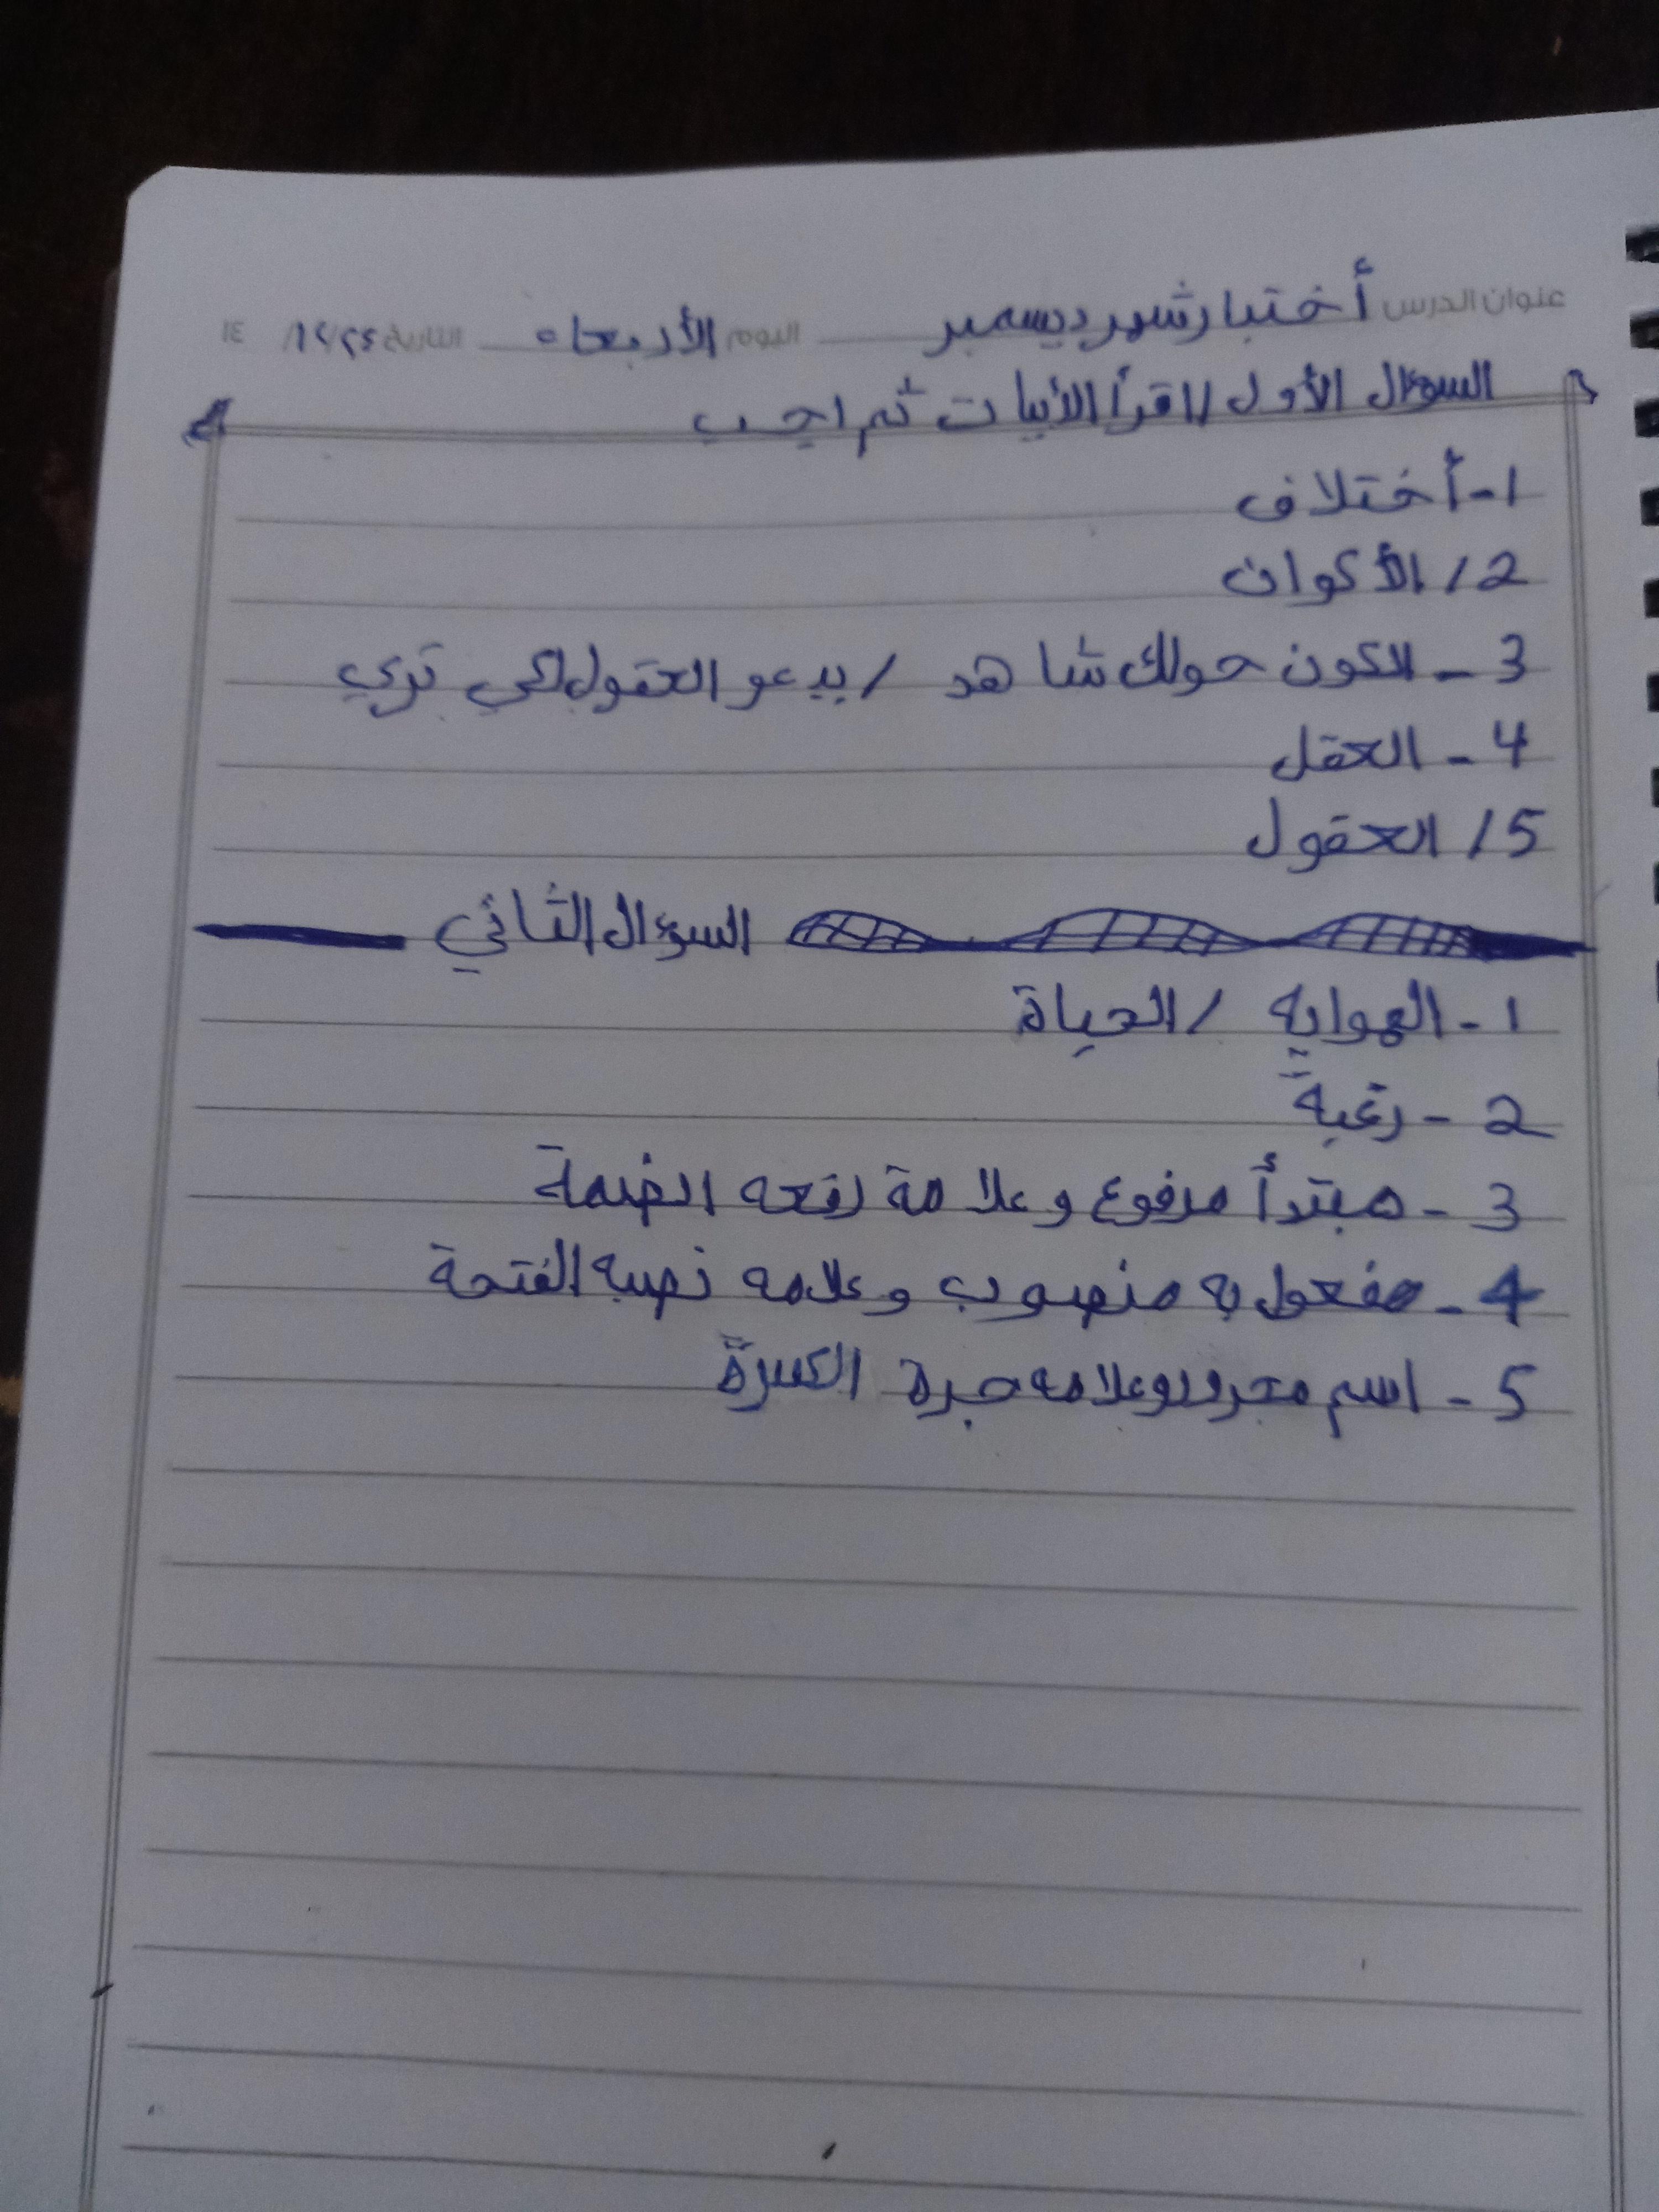 عنوان الدرس أختبار شهر ديسمبر اليوم الأربعاء التاريخ ١٢/٢٤/ ١٤
السؤال الأول / اقرأ الأبيات ثم اجب
1- أختلاف
2/ الأكوان
3- الكون حولك شاهد / يدعو العقول لكي تري
4- العقل
5/ العقول
السؤال الثاني
1- الهواية / الحياة
2- رغبة
3- مبتدأ مرفوع وعلامة رفعه الضمة
4- مفعول به منصوب وعلامه نصبه الفتحة
5- اسم مجرور وعلامه جرة الكسرة